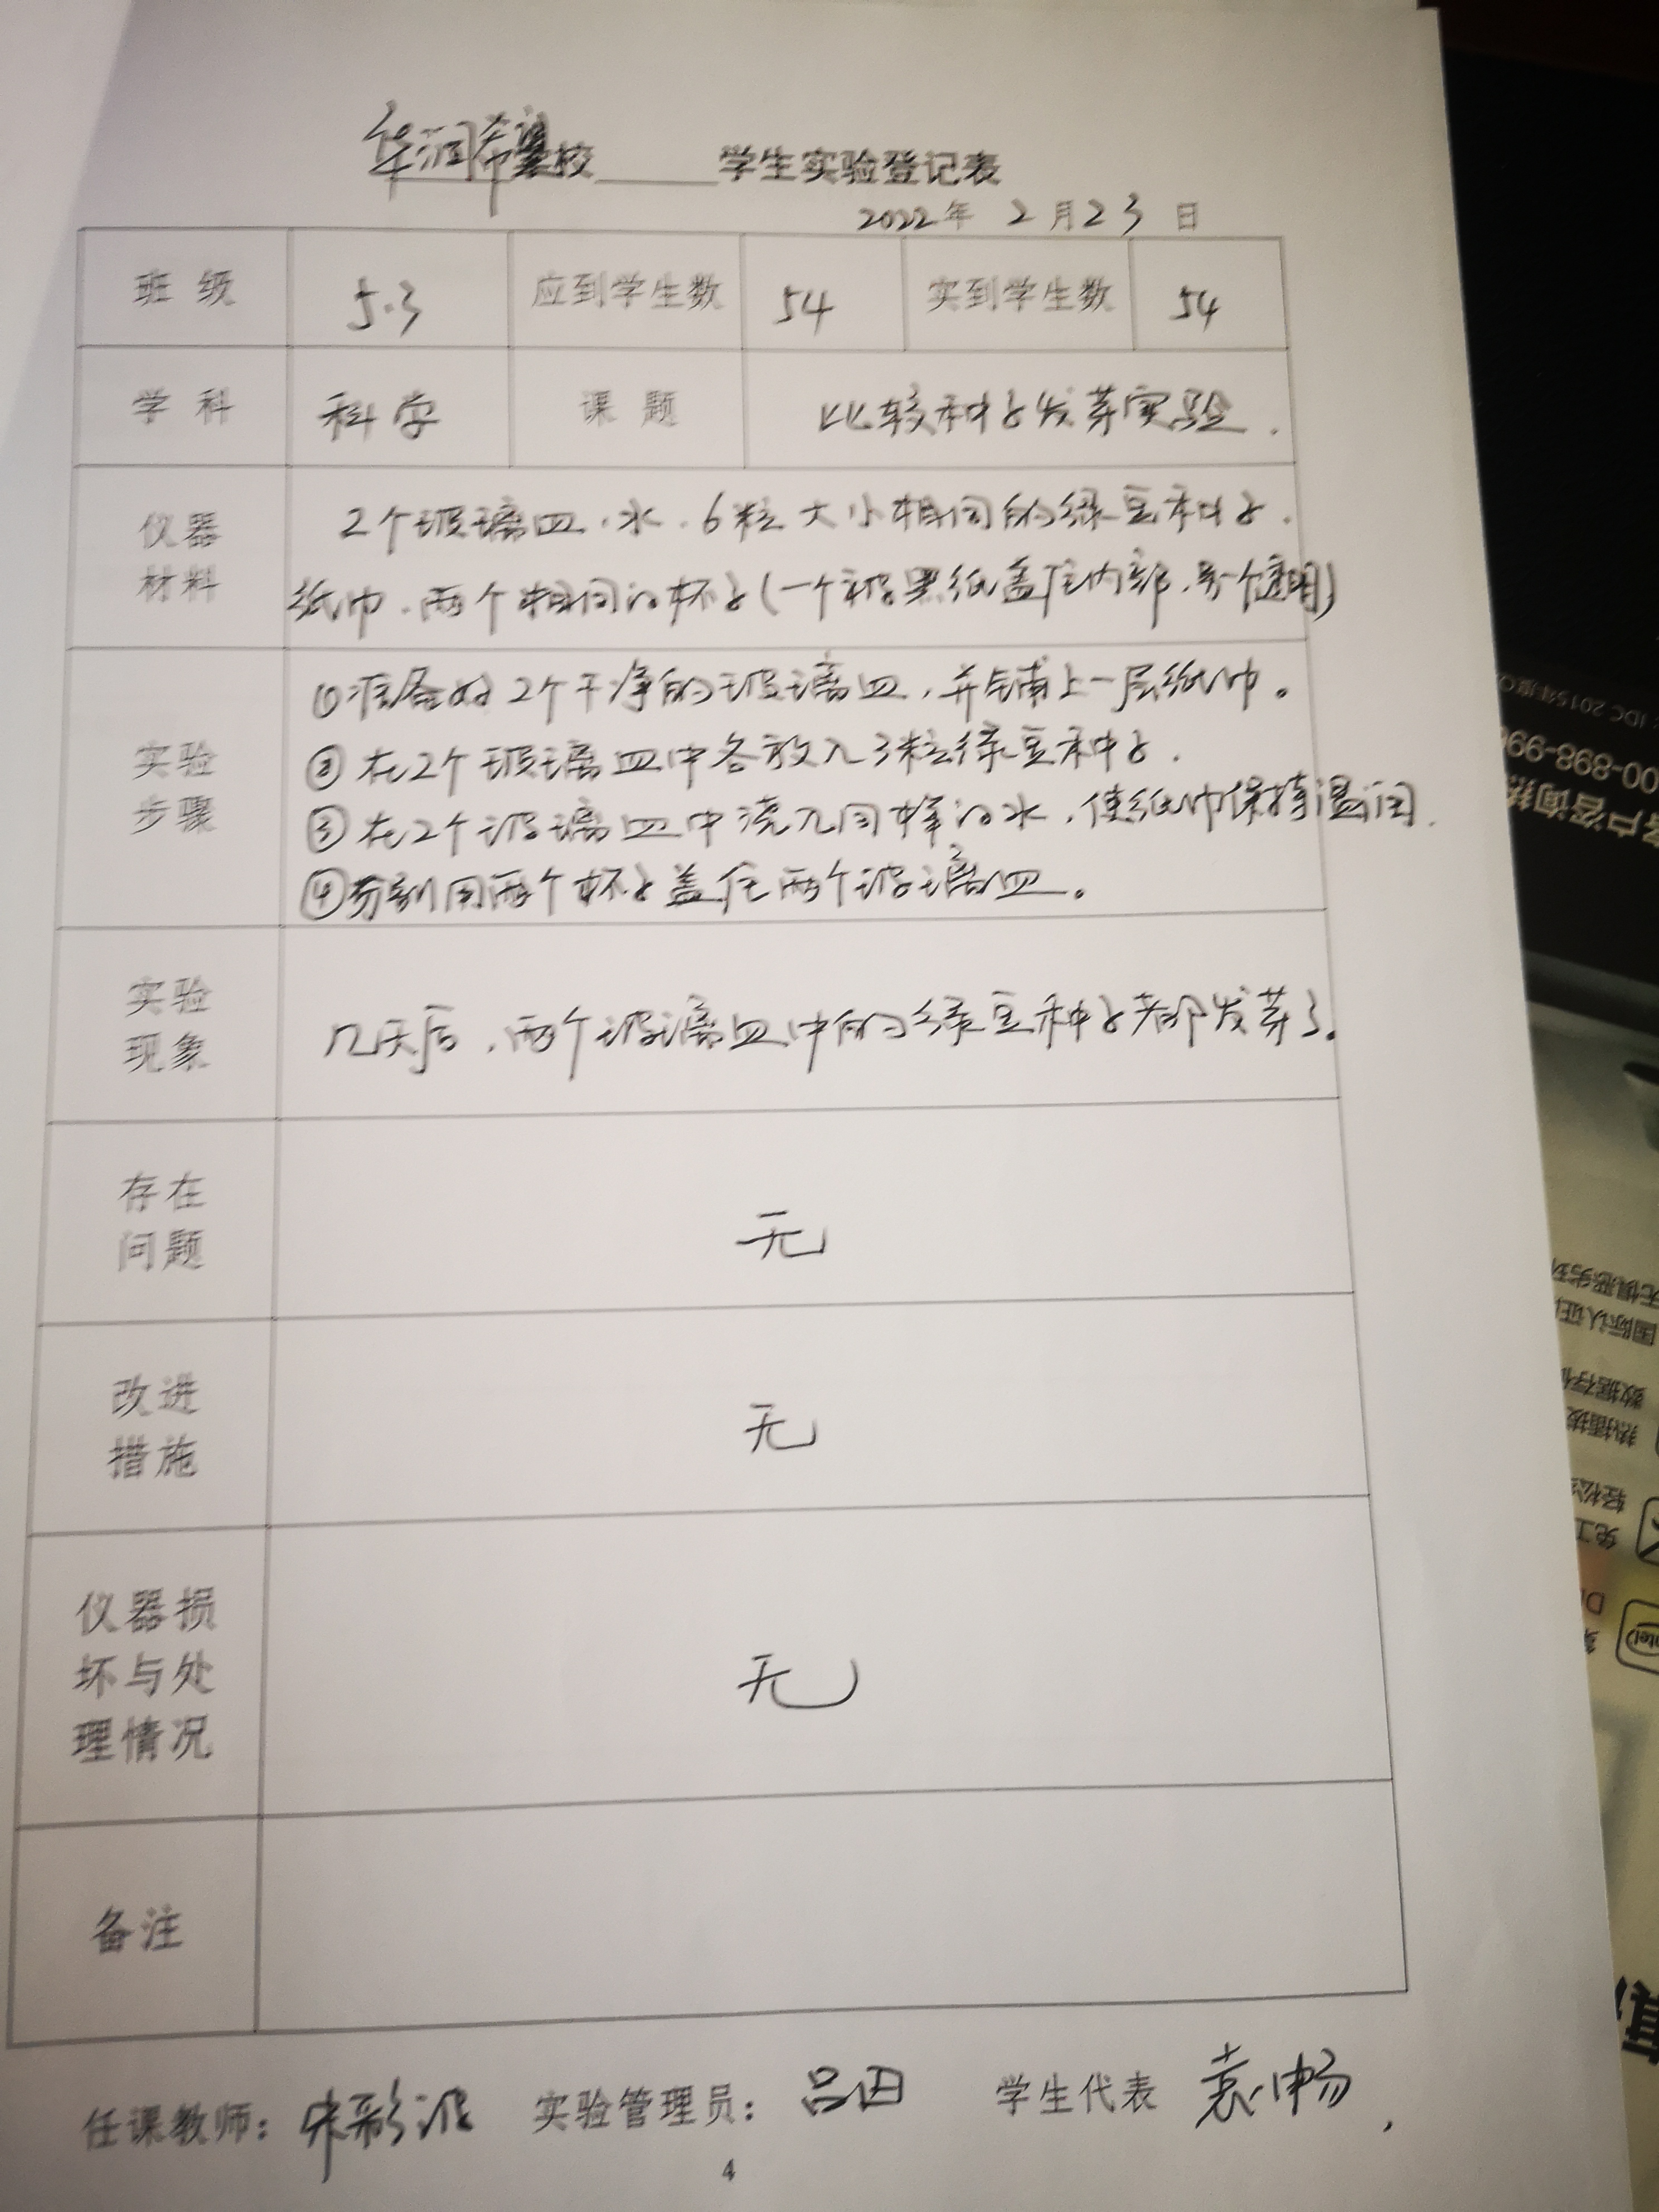 华润希望学校______学生实验登记表
2022年 2月23日
班 级 5.3 应到学生数 54 实到学生数 54
学 科 科学 课 题 比较种子发芽实验.
仪器
材料
2个玻璃皿、水、6粒大小相同的绿豆种子、
纸巾、两个相同的杯子(一个被黑纸盖住内部,另个透明)
实验
步骤
①准备好2个干净的玻璃皿,并铺上一层纸巾。
②在2个玻璃皿中各放入3粒绿豆种子.
③在2个玻璃皿中浇入同样的水,使纸巾保持温润.
④分别用两个杯子盖住两个玻璃皿。
实验
现象
几天后,两个玻璃皿中的绿豆种子都发芽了。
存在
问题
无
改进
措施
无
仪器损
坏与处
理情况
无
备注
任课教师: 实验管理员: 吕田 学生代表 袁畅
4
客户咨询热
国际认证
数据存
热插拔
轻松
免工